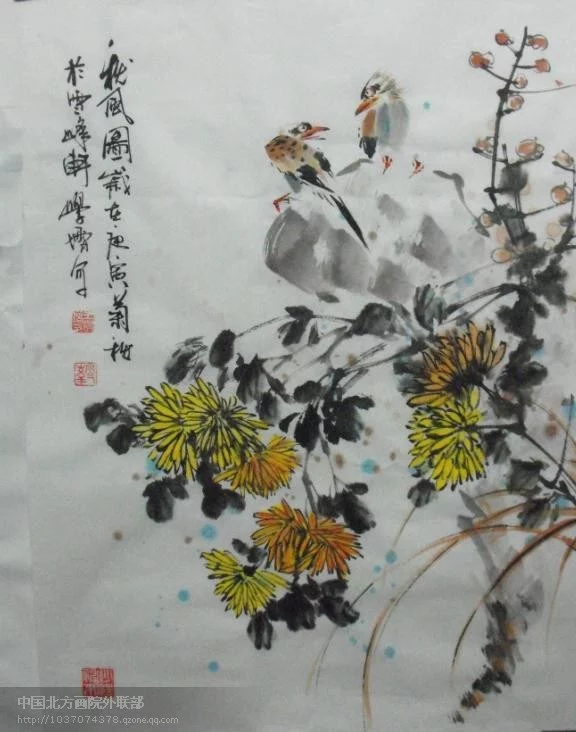 秋風圖歲在庚寅菊秋
於雪峰軒
中国北方画院外联部
http://1037074378.qzone.qq.com